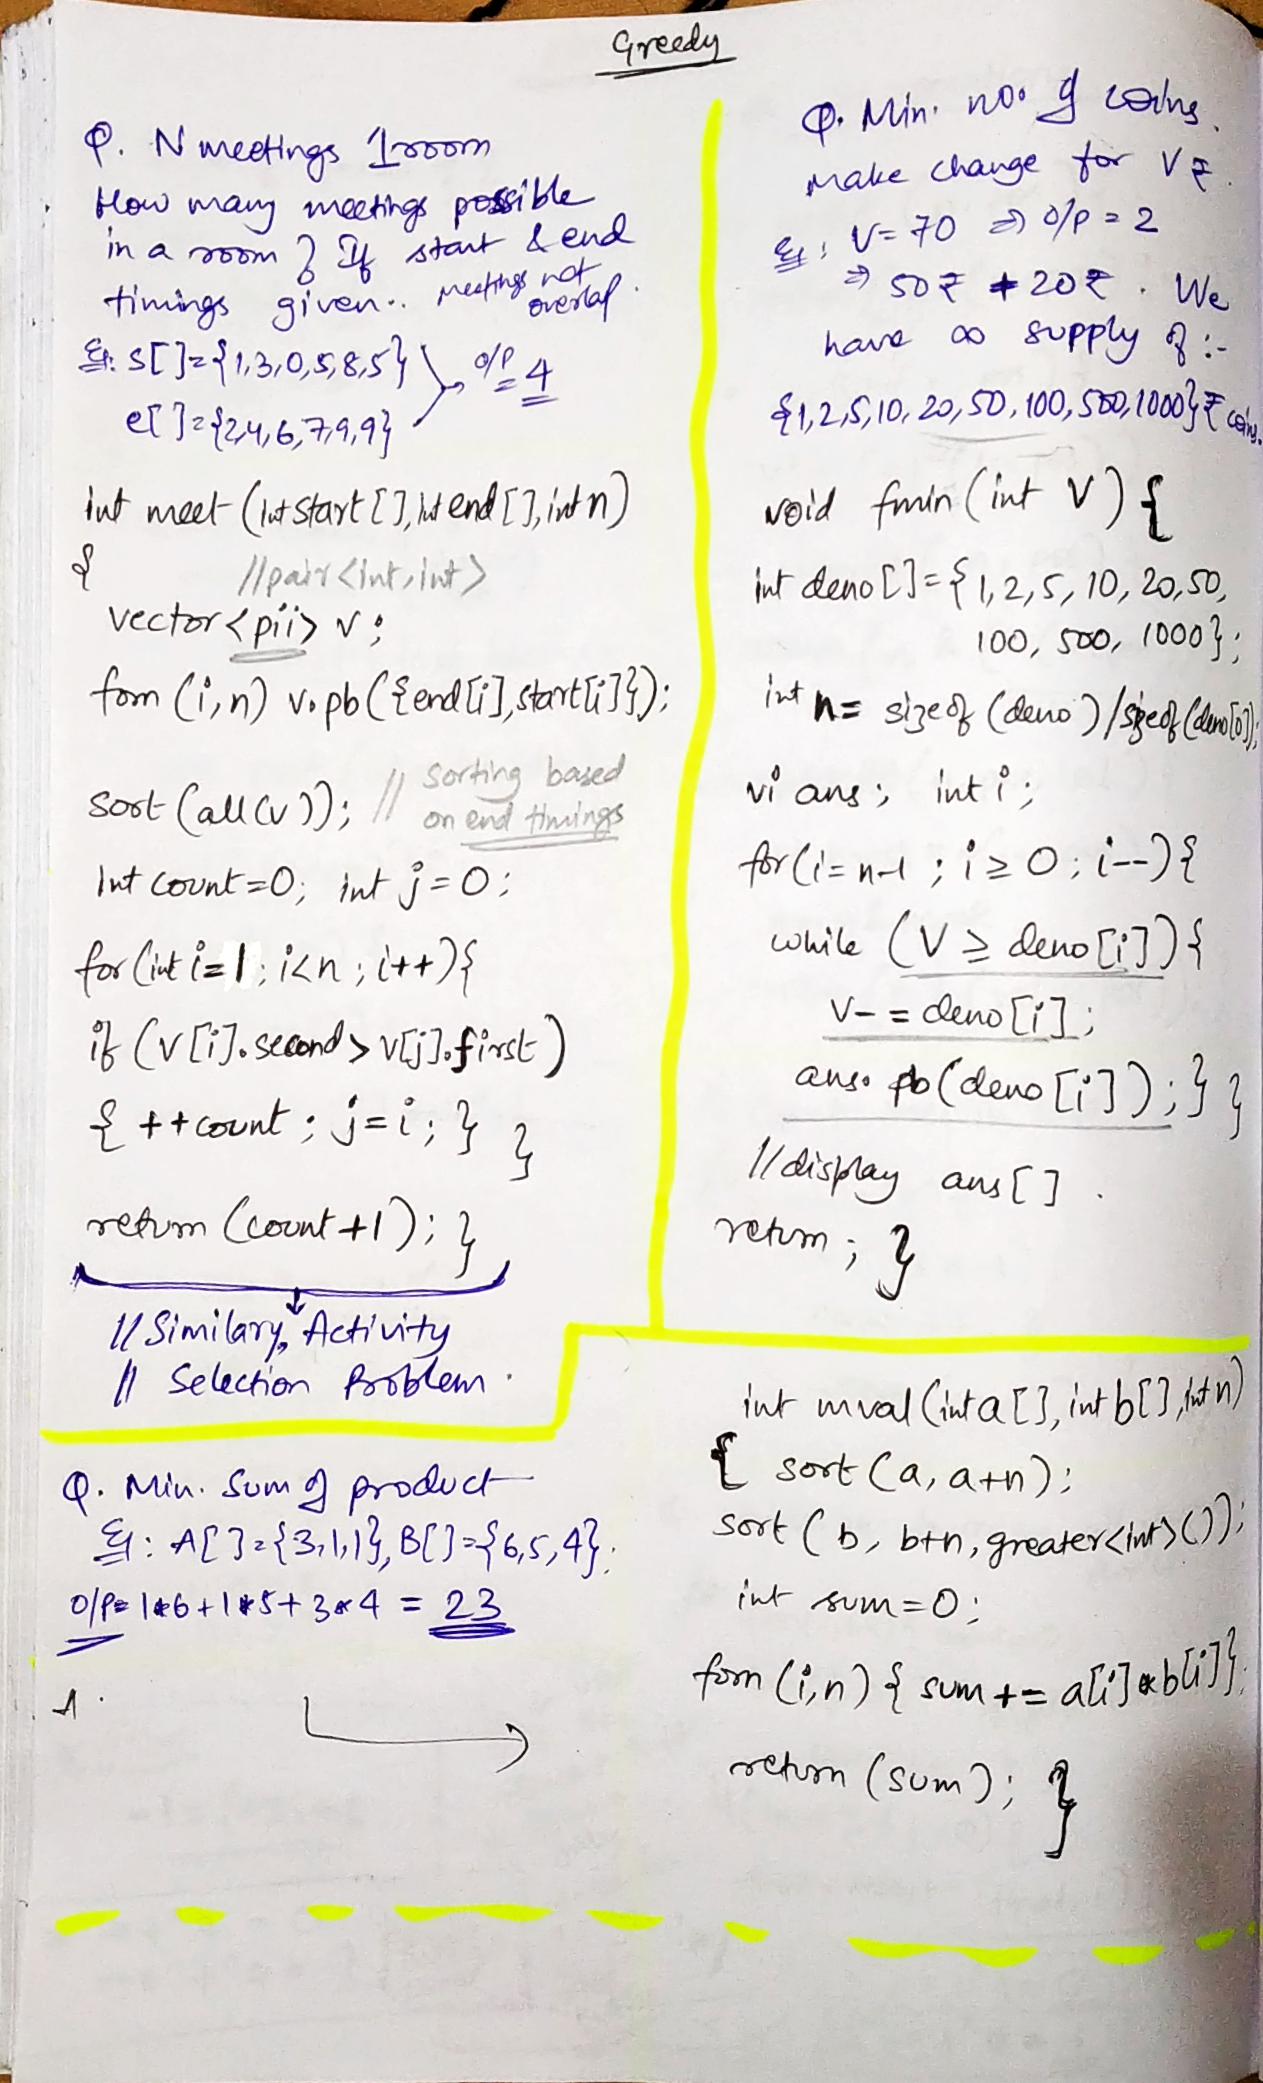 Greedy
Q. N meetings 1 room
How many meetings possible
in a room ? If start & end
timings given.. meetings not
overlap.
Eg: s[]={1,3,0,5,8,5}
e[]={2,4,6,7,9,9}
o/p = 4
int meet (int start[], int end[], int n)
{ //pair<int,int>
vector<pii> v;
forn (i,n) v.pb({end[i],start[i]});
sort (all(v)); // sorting based
on end timings
int count=0; int j=0;
for(int i=1; i<n; i++){
if (v[i].second > v[j].first)
{ ++count; j=i; } }
return (count+1); }
// Similary, Activity
// Selection Problem.
Q. Min. no. of coins.
Make change for V ₹.
Eg: V=70 ⇒ o/p = 2
⇒ 50₹ + 20₹. We
have ∞ supply of :-
{1,2,5,10,20,50,100,500,1000}₹ coins.
void fmin (int V) {
int deno[]={1,2,5,10,20,50,
100, 500, 1000};
int n= sizeof (deno)/sizeof(deno[0]);
vi ans; int i;
for(i=n-1; i≥0; i--){
while (V ≥ deno[i]){
V-= deno[i];
ans.pb(deno[i]);} }
//display ans[].
return; }
Q. Min. Sum of product
Eg: A[]={3,1,1}, B[]={6,5,4}.
o/p= 1*6+1*5+3*4 = 23
int mval (int a[], int b[], int n)
{ sort (a, a+n);
sort (b, b+n, greater<int>());
int sum=0;
forn (i,n) { sum += a[i]*b[i]};
return (sum); }